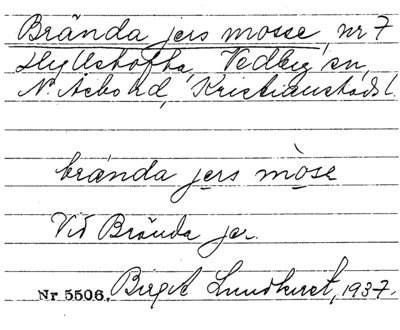 Brända jers mosse, nr 7
Hylleshofha, Vedby sn,
N. Åsbo hd, Kristianstads l.
brända jers mòse
Vid Brända jer.
Nr 5506. Birgit Lundkvist, 1937.